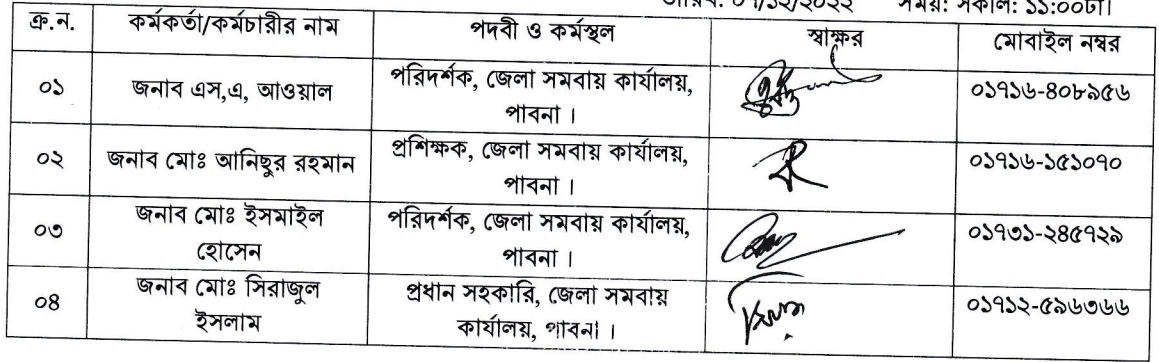 তারিখ: ০৭/১২/২০২২ সময়: সকাল: ১১:০০টা।
ক্র.ন. কর্মকর্তা/কর্মচারীর নাম পদবী ও কর্মস্থল স্বাক্ষর মোবাইল নম্বর
০১ জনাব এস,এ, আওয়াল পরিদর্শক, জেলা সমবায় কার্যালয়, ০১৭১৬-৪০৮৯৫৬
পাবনা ।
০২ জনাব মোঃ আনিছুর রহমান প্রশিক্ষক, জেলা সমবায় কার্যালয়, ০১৭১৬-১৫১০৭০
পাবনা ।
০৩ জনাব মোঃ ইসমাইল পরিদর্শক, জেলা সমবায় কার্যালয়, ০১৭৩১-২৪৫৭২৯
হোসেন পাবনা ।
০৪ জনাব মোঃ সিরাজুল প্রধান সহকারি, জেলা সমবায় ০১৭১২-৫৯৬৩৬৬
ইসলাম কার্যালয়, পাবনা ।